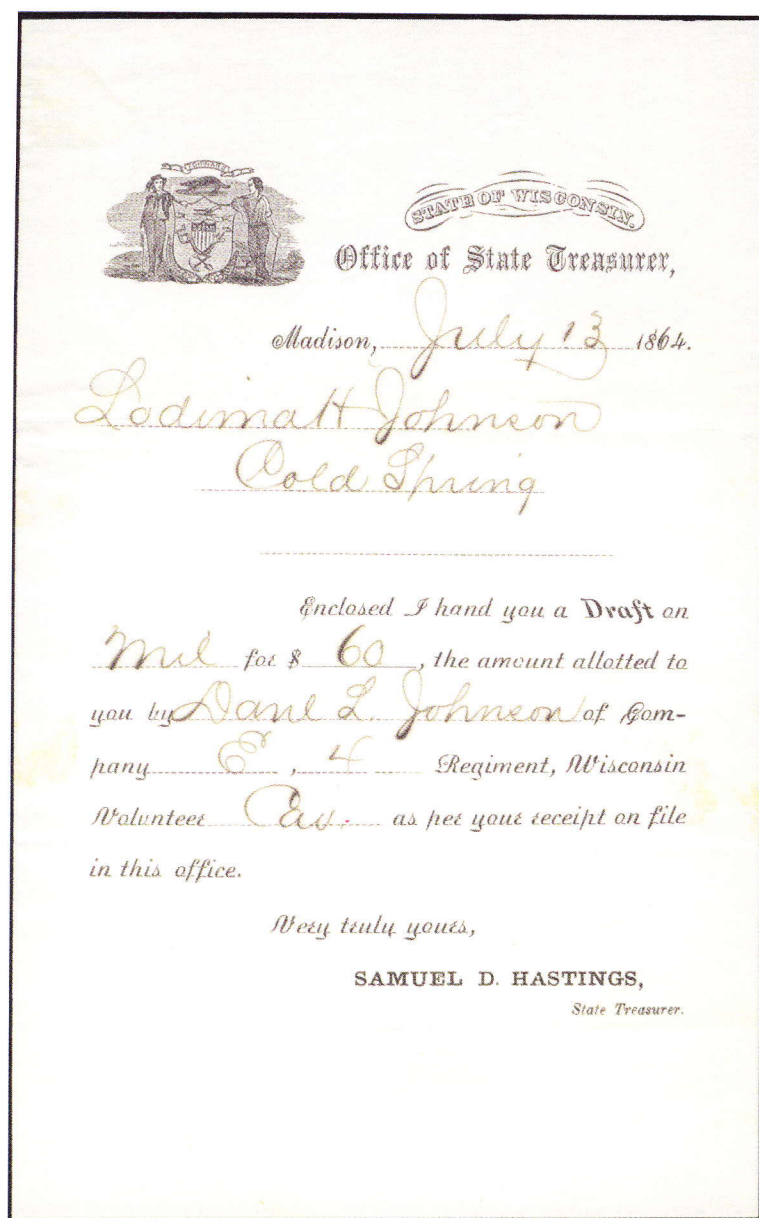 FORWARD
STATE OF WISCONSIN.
Office of State Treasurer,
Madison, July 13 1864.
Lodima H Johnson
Cold Spring
Enclosed I hand you a Draft on
Mil for $ 60, the amount allotted to
you by Danl L. Johnson of Com-
pany E, 4 Regiment, Wisconsin
Volunteer Cav. as per your receipt on file
in this office.
Very truly yours,
SAMUEL D. HASTINGS,
State Treasurer.